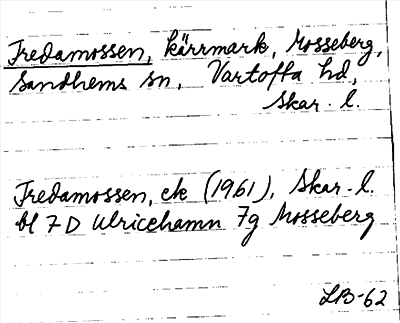 Fredamossen, kärrmark, Mosseberg,
Sandhems sn, Vartofta hd,
Skar. l.
Fredamossen, ek (1961), Skar. l.
bl 7 D Ulricehamn 7g Mosseberg
LB-62